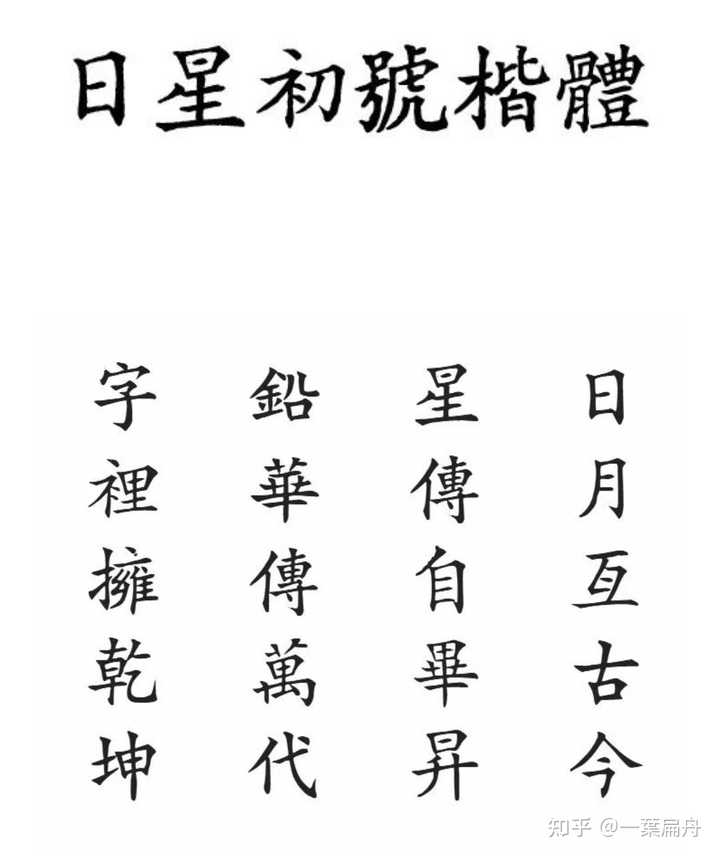 日星初號楷體
日月亙古今
星傳自畢昇
鉛華傳萬代
字裡擁乾坤
知乎 @一葉扁舟